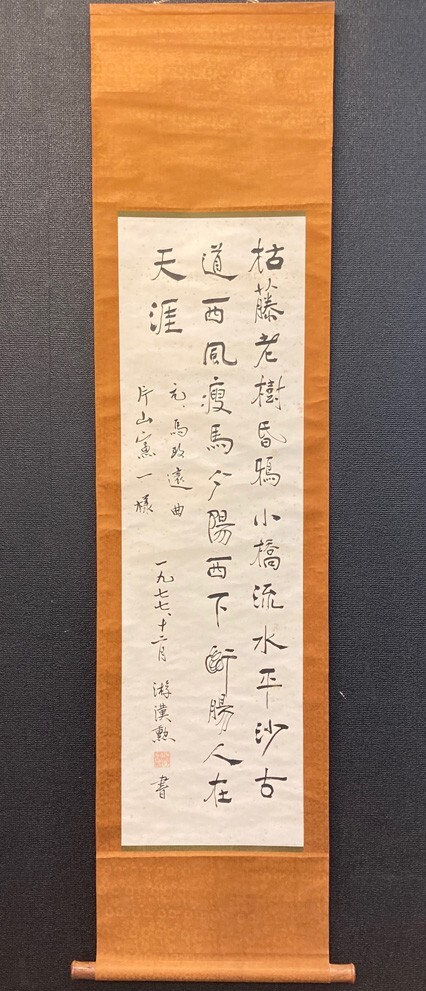 枯藤老樹昏鴉小橋流水平沙古
道西風瘦馬夕陽西下斷腸人在
天涯
元、馬致遠曲
片山憲一樣
一九七七、十二月 游漢勲 書